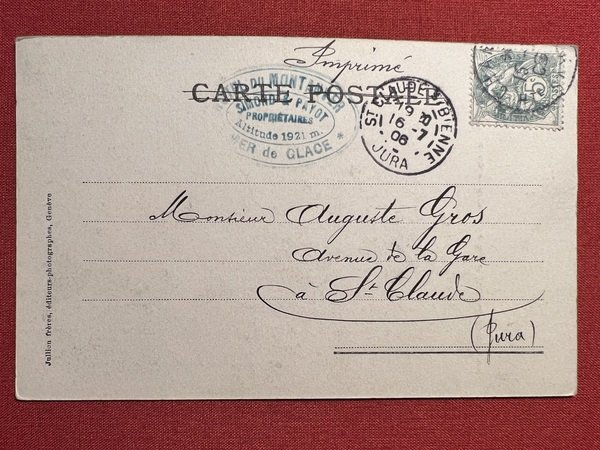 Imprimé
CARTE POSTALE
DU MONTANVER
SIMOND & PAYOT
PROPRIÉTAIRES
Altitude 1921 m.
MER de GLACE *
ST CLAUDE S BIENNE
19
16 -7
06
JURA
Monsieur Auguste Gros
Avenue de la Gare
à St Claude
(Jura)
Jullien frères, éditeurs-photographes, Genève